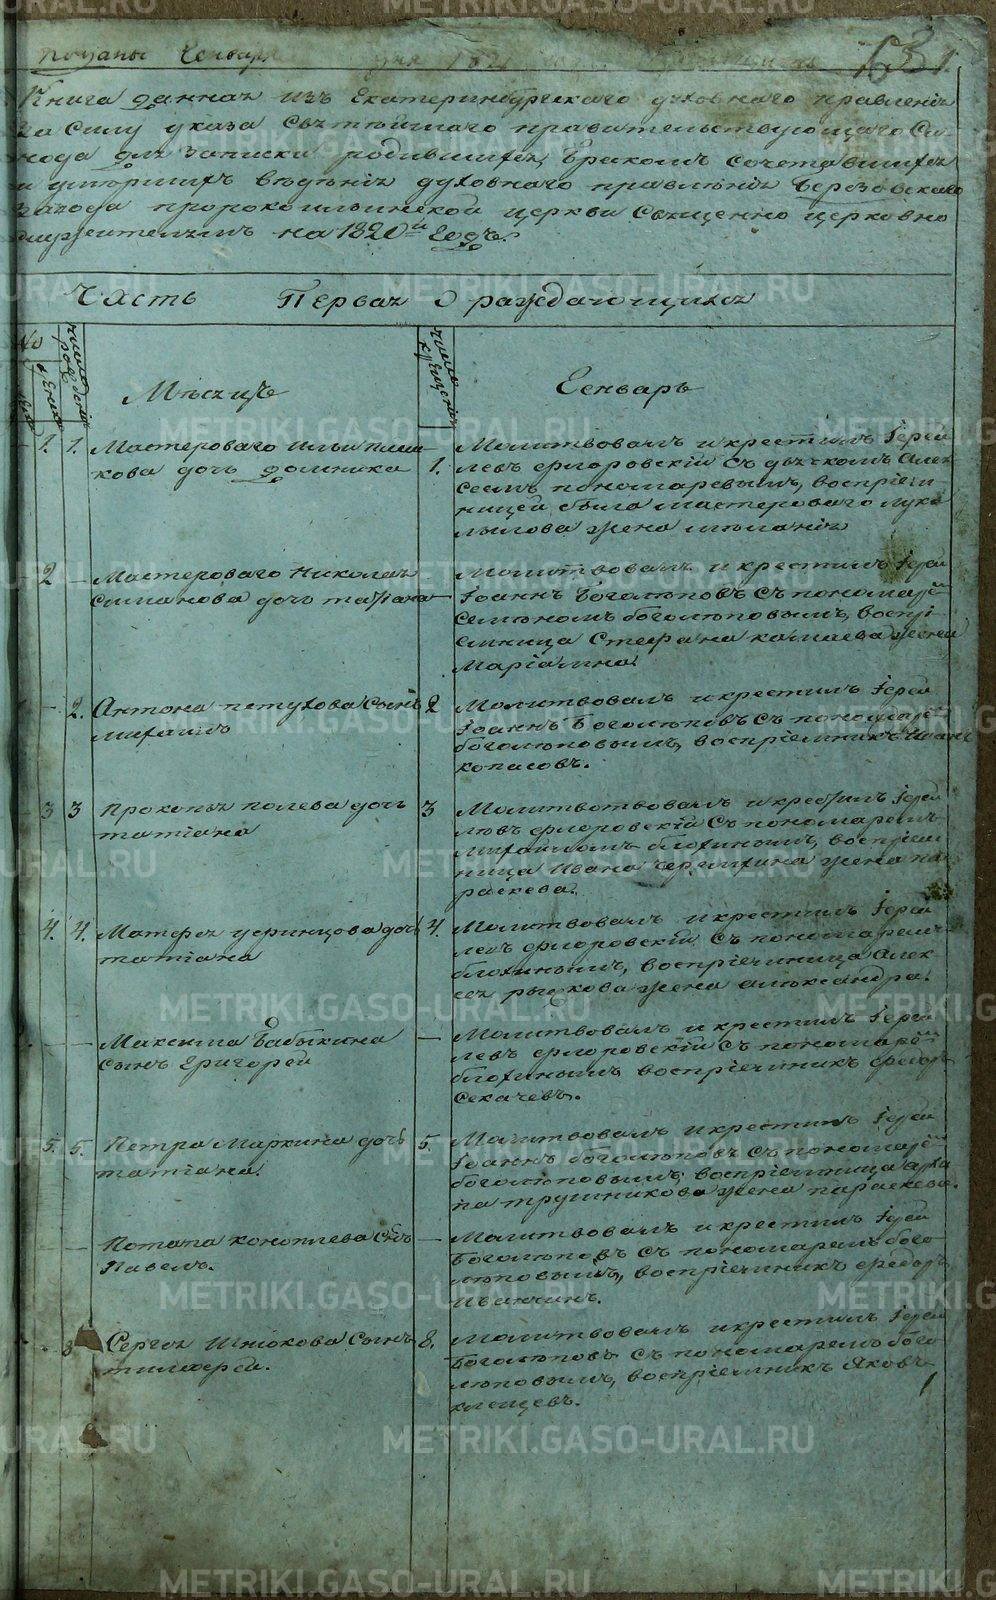 Поданы Генваря дня 1821
631.
Книга данная изъ Екатеринбургскаго духовнаго правленія
за силу указа Святѣйшаго правительствующаго Си
нода для записки родившихся, бракомъ сочетавшихся
и умершихъ вѣденія духовнаго правленія Березовскаго
завода пророкоильинской церкви Священно церковно
служителямъ на 1820й Годъ.
Часть Первая О раждающихся
№
число рожденія
число крещенія
Мѣсяцъ
Генварь
1. 1. Мастероваго Ильи
кова дочь домника
1. Молитвовалъ и крестилъ Іерей
Левъ флоровскій съ дьячкомъ Алек
сеемъ пономаревымъ, воспріем
ницей была мастероваго луки
мылова жена меланія
2 — Мастероваго Николая
Симанова дочь татіана —
Молитвовалъ и крестилъ Іерей
Іоаннъ Боголюповъ съ пономар
Семѣномъ боголюповымъ, воспрі
емница Стефана камаева жена
Маріамна.
— 2. Антона петухова Сынъ
михаилъ
2 Молитвовалъ и крестилъ Іерей
Іоаннъ Боголюповъ съ пономар
боголюповымъ, воспріемникъ Иванъ
копасовъ.
3 3 Прокопья полева дочь
татіана
3 Молитвовалъ и крестилъ Іерей
левъ флоровскій Съ пономаремъ
михаиломъ блохинымъ, воспріем
ница Ивана черемхина жена па
раскева.
4. 4. Матфея угринцова дочь
татіана
4. Молитвовалъ и крестилъ Іерей
левъ флоровскій Съ пономаремъ
блохинымъ, воспріемница Алек
сея рыжкова жена александра.
— Максима Бабыкина
сынъ Григорей
— Молитвовалъ и крестилъ Іерей
левъ флоровскій Съ пономарем
блохинымъ воспріемникъ федоръ
Секачевъ.
5. 5. Петра Маркина дочь
татіана.
5. Молитвовалъ и крестилъ Іерей
Іоаннъ боголюповъ Съ пономар
боголюповымъ, воспріемница архи
па трушникова жена параскева.
— Потапа коноплева Сынъ
Павелъ.
— Молитвовалъ и крестилъ Іерей
Боголюповъ Съ пономаремъ бого
люповымъ, воспріемникъ федоръ
иванчинъ.
8 Сергея Шнюкова Сынъ
тимофей.
8. Молитвовалъ и крестилъ Іерей
Боголюповъ Съ пономаремъ бого
люповымъ, воспріемникъ Яковъ
клещевъ.
METRIKI.GASO-URAL.RU